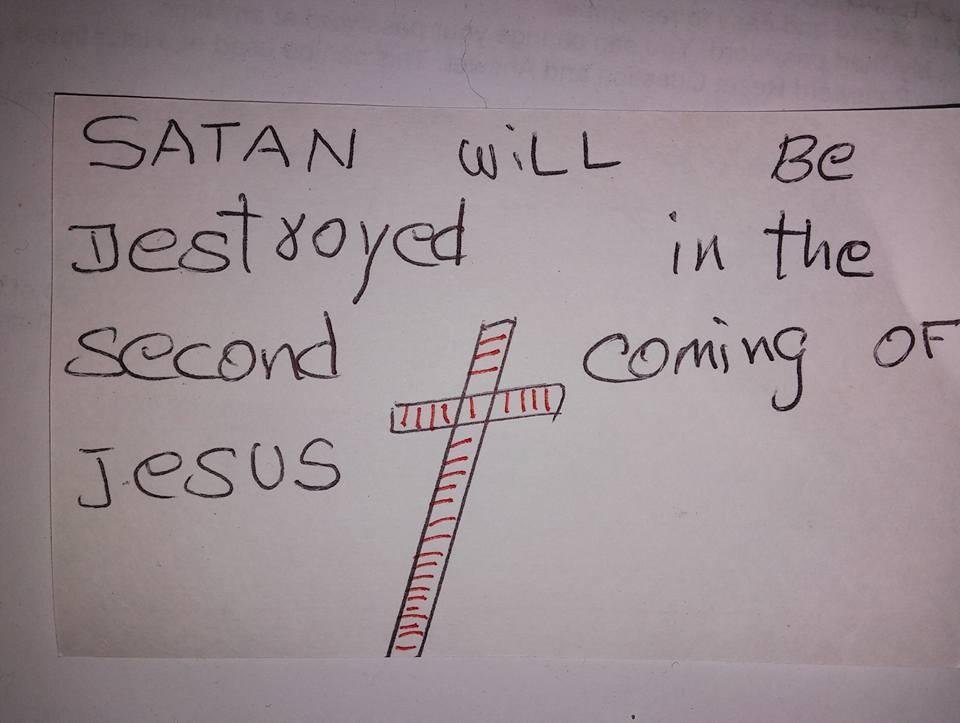 SATAN WiLL Be
Destroyed in the
second coming OF
Jesus